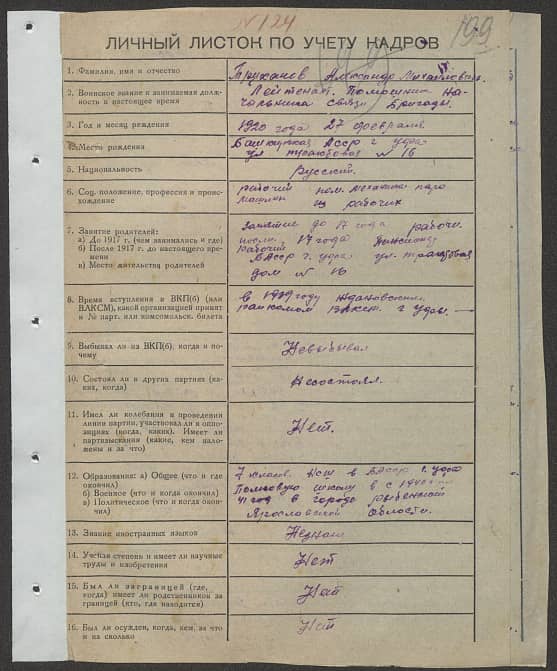 N 124
199
ЛИЧНЫЙ ЛИСТОК ПО УЧЕТУ КАДРОВ
1. Фамилия, имя и отчество
Труханов Александр Михайлович
2. Воинское звание и занимаемая должность в настоящее время
Лейтенант. Помощник начальника связи бригады.
3. Год и месяц рождения
1920 года 27 февраля
4. Место рождения
Башкирская АССР г. Уфа
ул № 16
5. Национальность
Русский.
6. Соц. положение, профессия и происхождение
рабочий пом. механика паро
машин из рабочих
7. Занятие родителей:
а) До 1917 г. (чем занимались и где)
б) После 1917 г. до настоящего времени
в) Место жительства родителей
Занятие до 17 года рабочи.
после 17 года
рабочий
БАССР г. Уфа ул.
дом № 16
8. Время вступления в ВКП(б) (или ВЛКСМ), какой организацией принят и № парт. или комсомольск. билета
в году Ждановским
райкомом ВЛКСМ г Уфы.
9. Выбывал ли из ВКП(б), когда и почему
Невыбывал
10. Состоял ли в других партиях (каких, когда)
Несостоял.
11. Имел ли колебания в проведении линии партии, участвовал ли в оппозициях (когда, каких). Имеет ли партвзыскания (какие, кем наложены и за что)
Нет.
12. Образование: а) Общее (что и где окончил)
б) Военное (что и когда окончил)
в) Политическое (что и когда окончил)
7 классов НСШ в БАССР г. Уфа
Полковую школу в с
41 год в городе
Ярославской области.
13. Знание иностранных языков
Незнаю
14. Ученая степень и имеет ли научные труды и изобретения
Нет
15. Был ли заграницей (где, когда) имеет ли родственников за границей (кто, где находится)
Нет
16. Был ли осужден, когда, кем, за что и на сколько
Нет